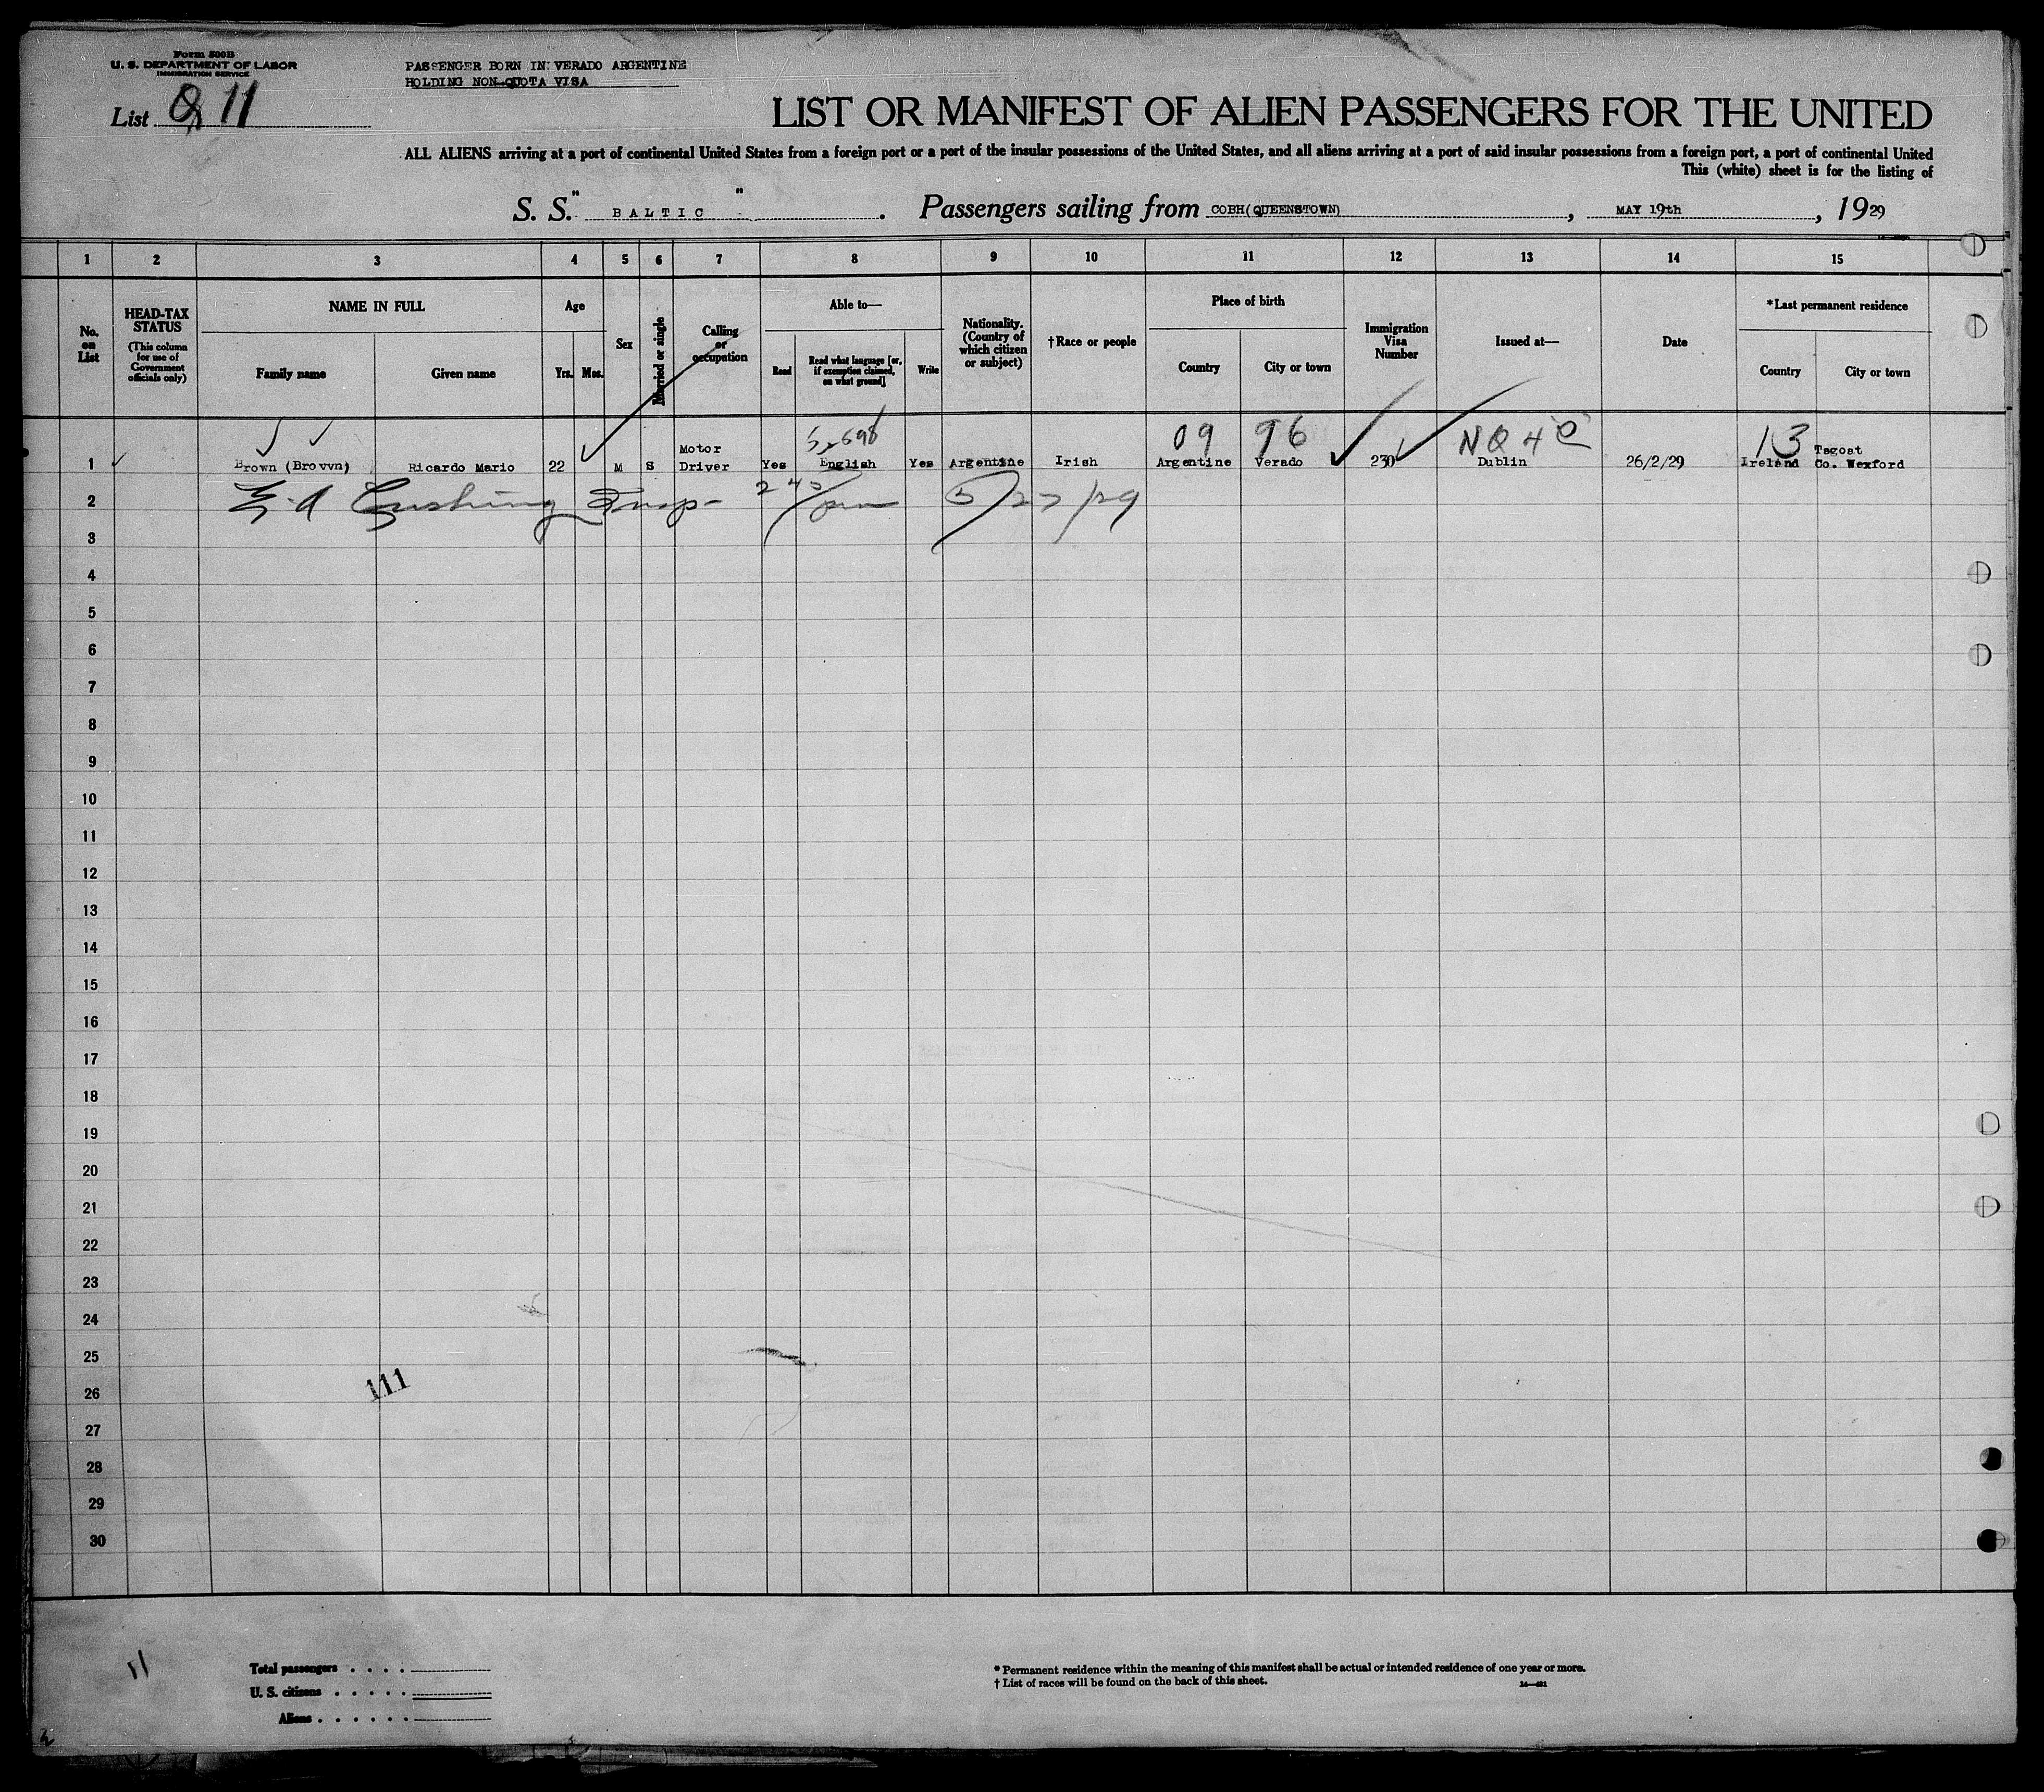 Form 500B
U. S. DEPARTMENT OF LABOR
IMMIGRATION SERVICE
List 11
PASSENGER BORN IN: VERADO ARGENTINE
HOLDING NON-QUOTA VISA
LIST OR MANIFEST OF ALIEN PASSENGERS FOR THE UNITED
ALL ALIENS arriving at a port of continental United States from a foreign port or a port of the insular possessions of the United States, and all aliens arriving at a port of said insular possessions from a foreign port, a port of continental United
This (white) sheet is for the listing of
S. S. "BALTIC". Passengers sailing from COBH(QUEENSTOWN), MAY 19th, 1929
1 2 3 4 5 6 7 8 9 10 11 12 13 14 15
No. on List
HEAD-TAX STATUS
(This column for use of Government officials only)
NAME IN FULL
Family name Given name
Age
Yrs. Mos.
Sex
Married or single
Calling or occupation
Able to—
Read
Read what language [or, if exemption claimed, on what ground]
Write
Nationality. (Country of which citizen or subject)
†Race or people
Place of birth
Country City or town
Immigration Visa Number
Issued at—
Date
*Last permanent residence
Country City or town
09 96 NQ 4 13
1 Brown (Brovvn) Ricardo Mario 22 M S Motor Driver Yes English Yes Argentine Irish Argentine Verado 230 Dublin 26/2/29 Ireland Tagoat Co. Wexford
2 Cushing Insp- 5/27/29
3
4
5
6
7
8
9
10
11
12
13
14
15
16
17
18
19
20
21
22
23
24
25
26
111
27
28
29
30
11
Total passengers . . . .
U. S. citizens . . . . .
Aliens . . . . . .
* Permanent residence within the meaning of this manifest shall be actual or intended residence of one year or more.
† List of races will be found on the back of this sheet.